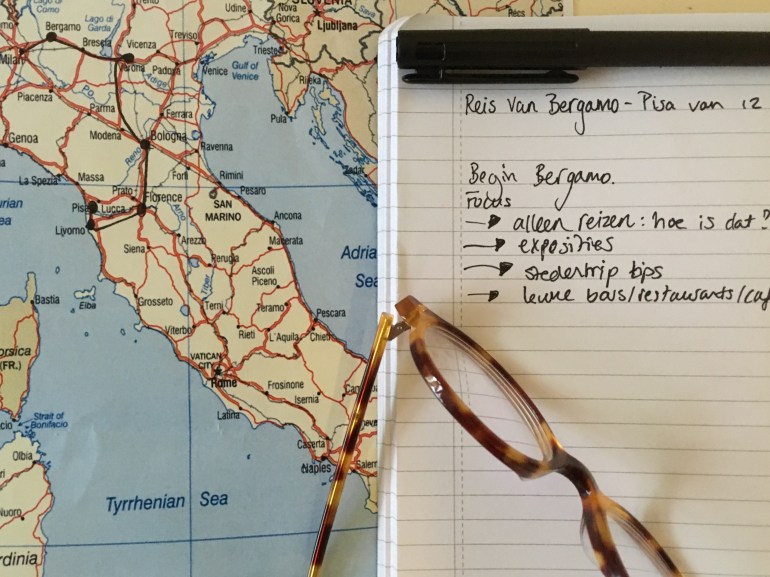 Lago di
Como
Bergamo
Milan
Lago di
Garda
Brescia
Verona
Vicenza
Treviso
Udine
Nova
Gorica
SLOVENIA
Ljubljana
Sava
Trieste
Padova
Venice
Gulf of
Venice
Adige
Po
Rijeka
Piacenza
Parma
Ferrara
Pula
Modena
Bologna
Genoa
Reno
Ravenna
Forlì
Rimini
Zadar
La Spezia
Massa
Prato
Pesaro
Florence
SAN
MARINO
Pisa
Lucca
Livorno
Arno
Ancona
Siena
Arezzo
Macerata
Perugia
Adria
Sea
Tiber
Ascoli
Piceno
Elba
Bastia
Grosseto
Terni
Teramo
Pescara
Viterbo
Rieti
L'Aquila
Chieti
orsica
(FR.)
VATICAN
CITY
Rome
Frosinone
Isernia
Latina
Strait of
Bonifacio
Caserta
Naples
Salern
Olbia
Nuoro
Tyrrhenian Sea
rdinia
Reis Van Bergamo - Pisa van 12
Begin Bergamo.
Focus
→ alleen reizen: hoe is dat?
→ exposities
→ stedentrip tips
→ leuke bars/restaurants/caf